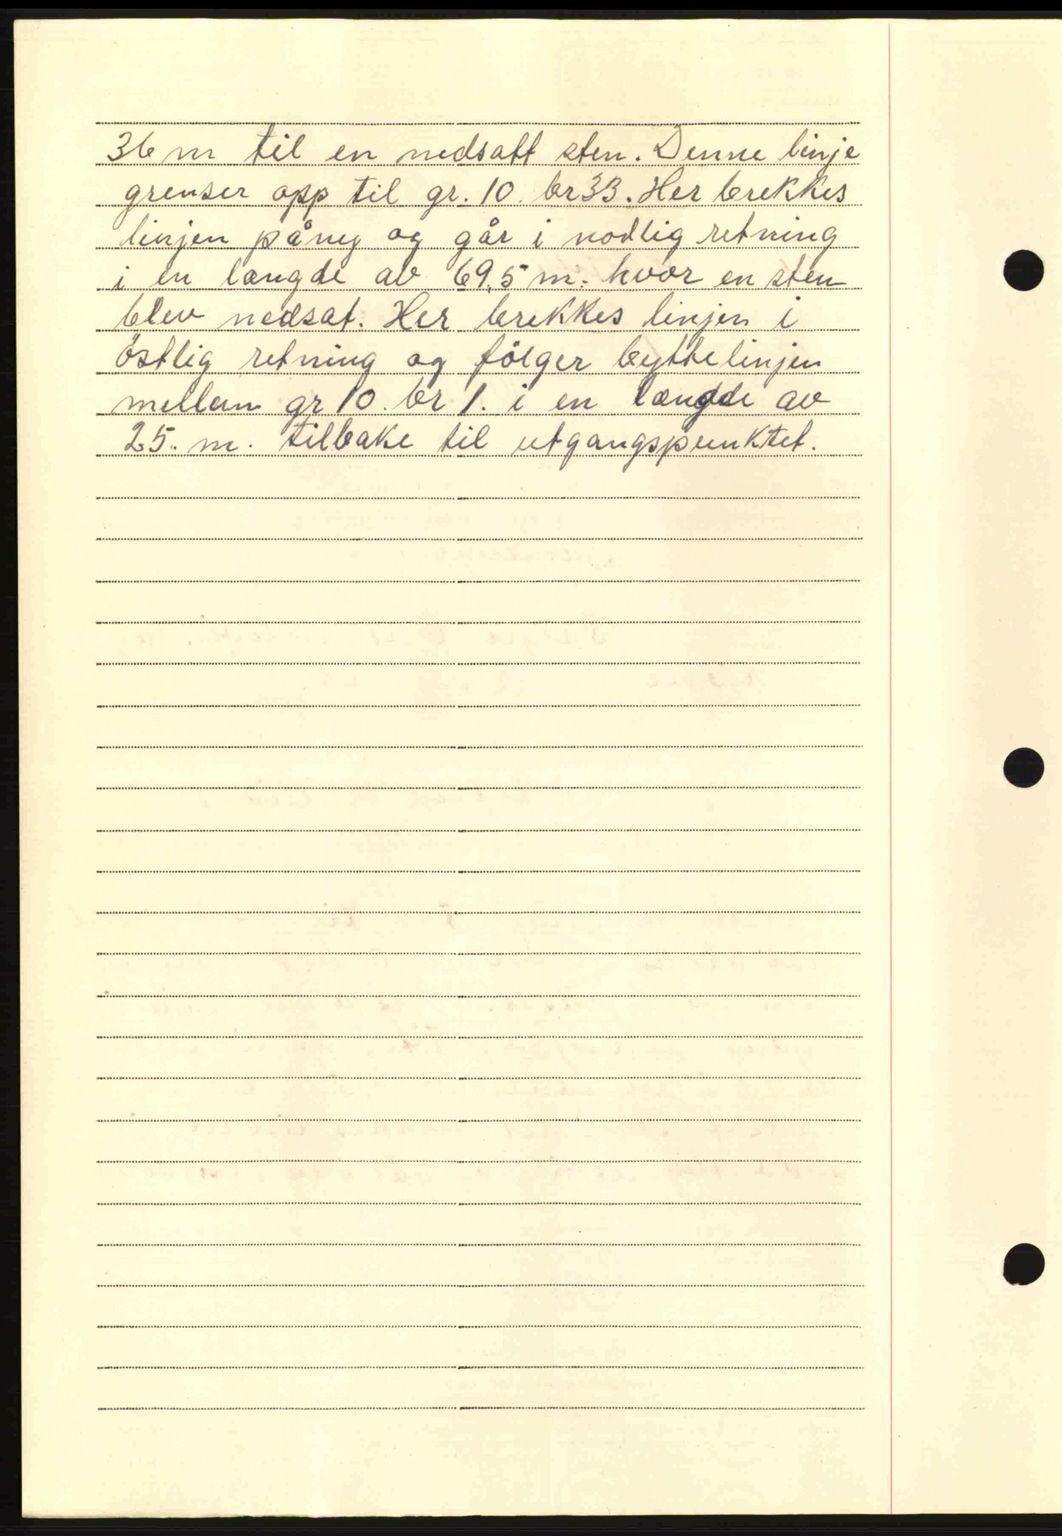 36 m til en nedsatt sten. Denne linje
grenser opp til gr. 10. br 33. Her brekkes
linjen påny og går i nodlig retning
i en længde av 69,5 m. hvor en sten
blev nedsat. Her brekkes linjen i
östlig retning og fölger byttelinjen
mellem gr 10. br 1. i en længde av
25. m. tilbake til utgangspunktet.